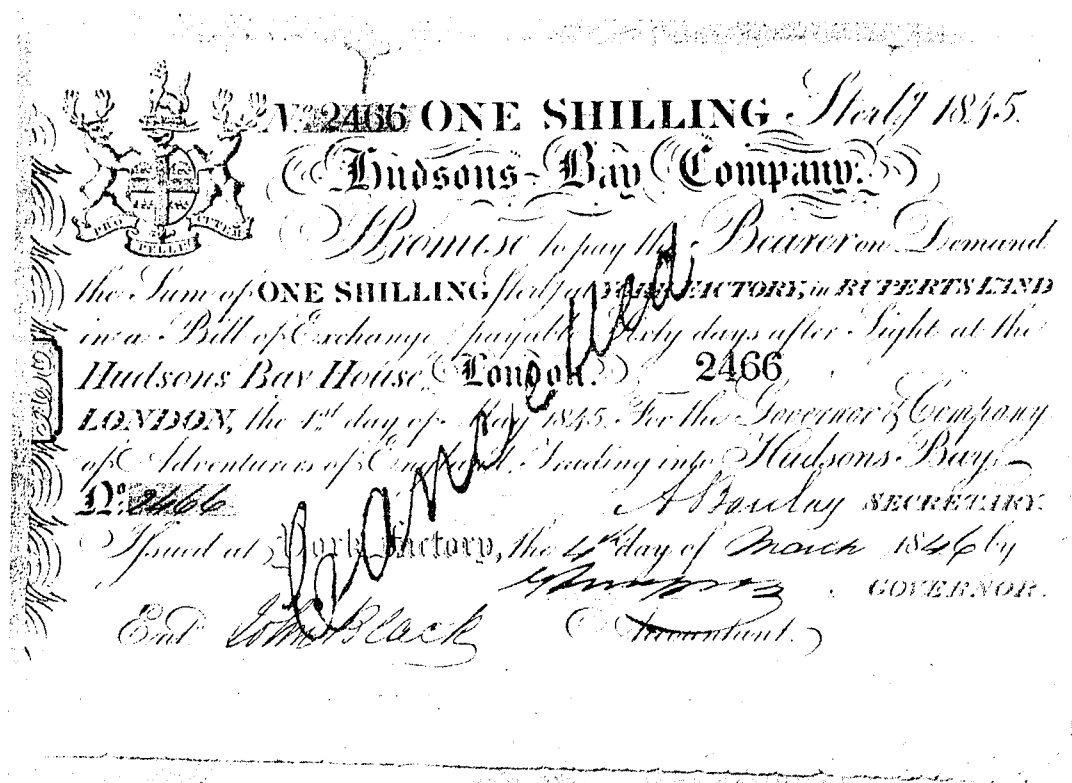 No. 2466 ONE SHILLING Sterlg 1845.
Hudsons-Bay Company.
PRO PELLE CUTEM
I Promise to pay the Bearer on Demand
the Sum of ONE SHILLING Sterlg at YORK FACTORY, in RUPERTS LAND
in a Bill of Exchange payable Sixty days after Sight at the
Hudsons Bay House, London. 2466
LONDON, the 1st day of May 1845. For the Governor & Company
of Adventurers of England, Trading into Hudsons Bay,
No. 2466 SECRETARY.
Issued at York Factory, the 4th day of March 1846 by
GOVERNOR.
Entd John Black Accountant.
Cancelled